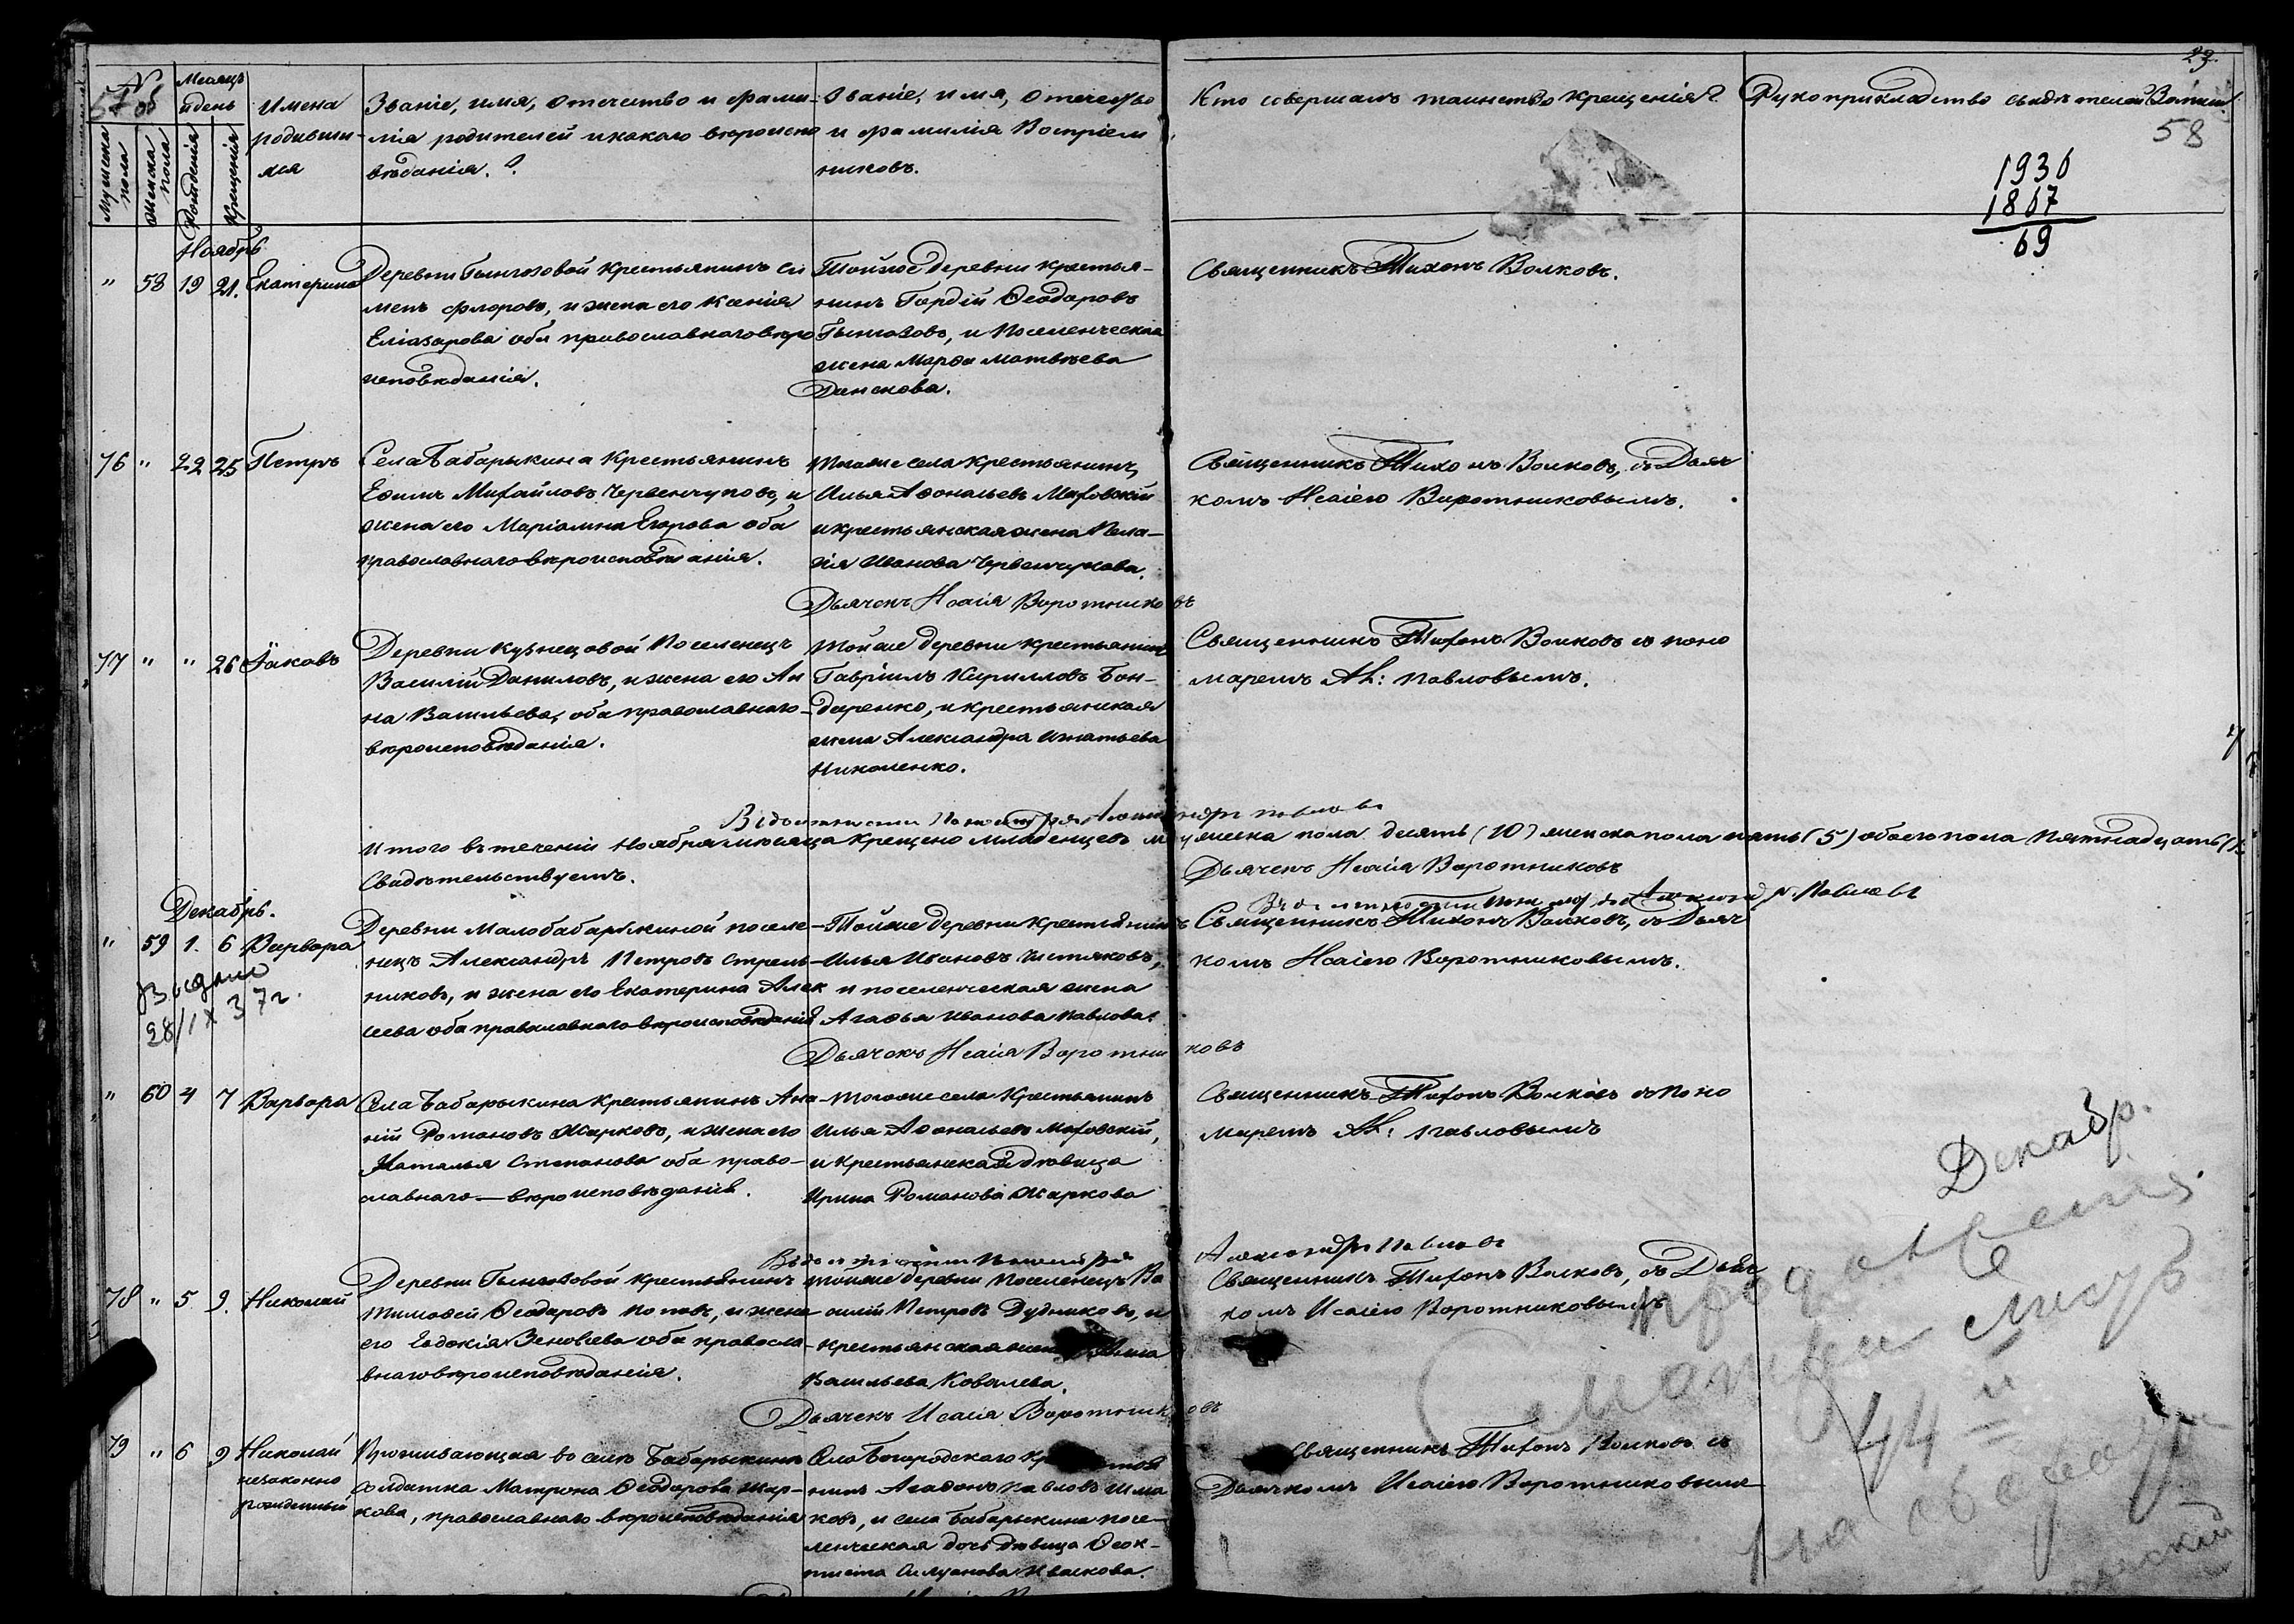 29.
57 об
58
№
Месяцъ
и день
Мужеска пола
Женска пола
Рожденія
Крещенія
Имена
родивши-
мся
Званіе, имя, отечество и фами-
лія родителей и какаго вероиспо
вѣданія.?
Званіе, имя, отечество
и фамилія Воспріем
никовъ.
Кто совершалъ таинство крещенія?
Рукоприкладство свидѣтелей
1936
1867
69
Ноябрь
" 58 19 21. Екатерина
Деревни крестьянинъ Си
менъ Флоровъ, и жена его Ксенія
Еліазарова оба православнаго веро
исповѣданія.
Тойже деревни крестья-
нинъ Гордій Ѳеодоровъ
и Поселенческая
жена Марѳа Матвѣева
Данскова.
Священникъ Тихонъ Волковъ.
76 " 22 25 Петръ
Села Бабарыкина Крестьянинъ
Ефимъ Михайловъ Червенчуковъ, и
жена его Маріамна Егорова оба
православнаго вероисповѣданія.
Тогоже села Крестьянинъ
Илья Аѳонасьевъ
и крестьянская жена Пела-
гія Иванова Червенчукова.
Священникъ Тихонъ Волковъ, съ Дьяч
комъ Исаіею Воротниковымъ.
Дьячекъ Исаія Воротниковъ
77 " " 26 Іаковъ
Деревни Кузнецовой Поселенецъ
Василій Даниловъ, и жена его Ан
на Васильева, оба православнаго
вероисповѣданія.
Тойже деревни крестьянинъ
Гавріилъ Кирилловъ Бон-
даренко, и крестьянская
жена Александра Игнатьева
Николенко.
Священникъ Тихонъ Волковъ съ поно
маремъ Ал: Павловымъ.
Въ должности Пономаря Александръ Павловъ
Итого въ теченіи Ноября мѣсяца Крещено Младенцевъ мужеска пола десять (10) женска пола пять (5) обоего пола Пятнадцать
Свидѣтельствуемъ.
Дьячекъ Исаія Воротниковъ
Въ должности Пономаря Александръ Павловъ
Декабрь.
" 59 1. 6 Варвара
Выдано
28/IX 37 г.
Деревни Малобабарыкиной поселе-
нецъ Александръ Петровъ Стрель-
никовъ, и жена его Екатерина Алек
сеева оба православнаго вероисповѣданія
Тойже деревни Крестьянинъ
Илья Ивановъ
и поселенческая жена
Агаѳья Иванова Павлова.
Священникъ Тихонъ Волковъ, съ Дьяч
комъ Исаіею Воротниковымъ.
Дьячекъ Исаія Воротниковъ
" 60 4 7 Варвара
Села Бабарыкина Крестьянинъ Ана
ній Романовъ Жарковъ, и жена его
Наталья Степанова оба право-
славнаго вероисповѣданія.
Тогоже села Крестьянинъ
Илья Аѳонасьевъ
и Крестьянская дѣвица
Ирина Романова Жаркова
Священникъ Тихонъ Волковъ съ Поно
маремъ Ал: Павловымъ
Въ должности Пономаря Александръ Павловъ
78 " 5 9. Николай
Деревни крестьянинъ
Тимоѳей Ѳеодоровъ Поповъ, и жена
его Евдокія Зеновіева оба правосла-
внаго вероисповѣданія.
Тойже деревни Поселенецъ Ва
силій Петровъ Дудниковъ, и
крестьянская жена Анна
Васильева Ковалева.
Священникъ Тихонъ Волковъ, съ Дьяч
комъ Исаіею Воротниковымъ
Дьячекъ Исаія Воротниковъ
79 " 6 9 Николай
незаконно
рожденный
Проживающая во селѣ Бабарыкинѣ
солдатка Матрона Ѳеодорова Жар-
кова, православнаго вероисповѣданія
Села Богородскаго
нинъ Агаѳонъ Павловъ Шма
ковъ, и села Бабарыкина посе-
ленческая дочь дѣвица Ѳеок-
тиста Силуанова Ивакова.
Священникъ Тихонъ Волковъ съ
Дьячкомъ Исаіею Воротниковымъ
Декабр.
Смотри листъ
44
на